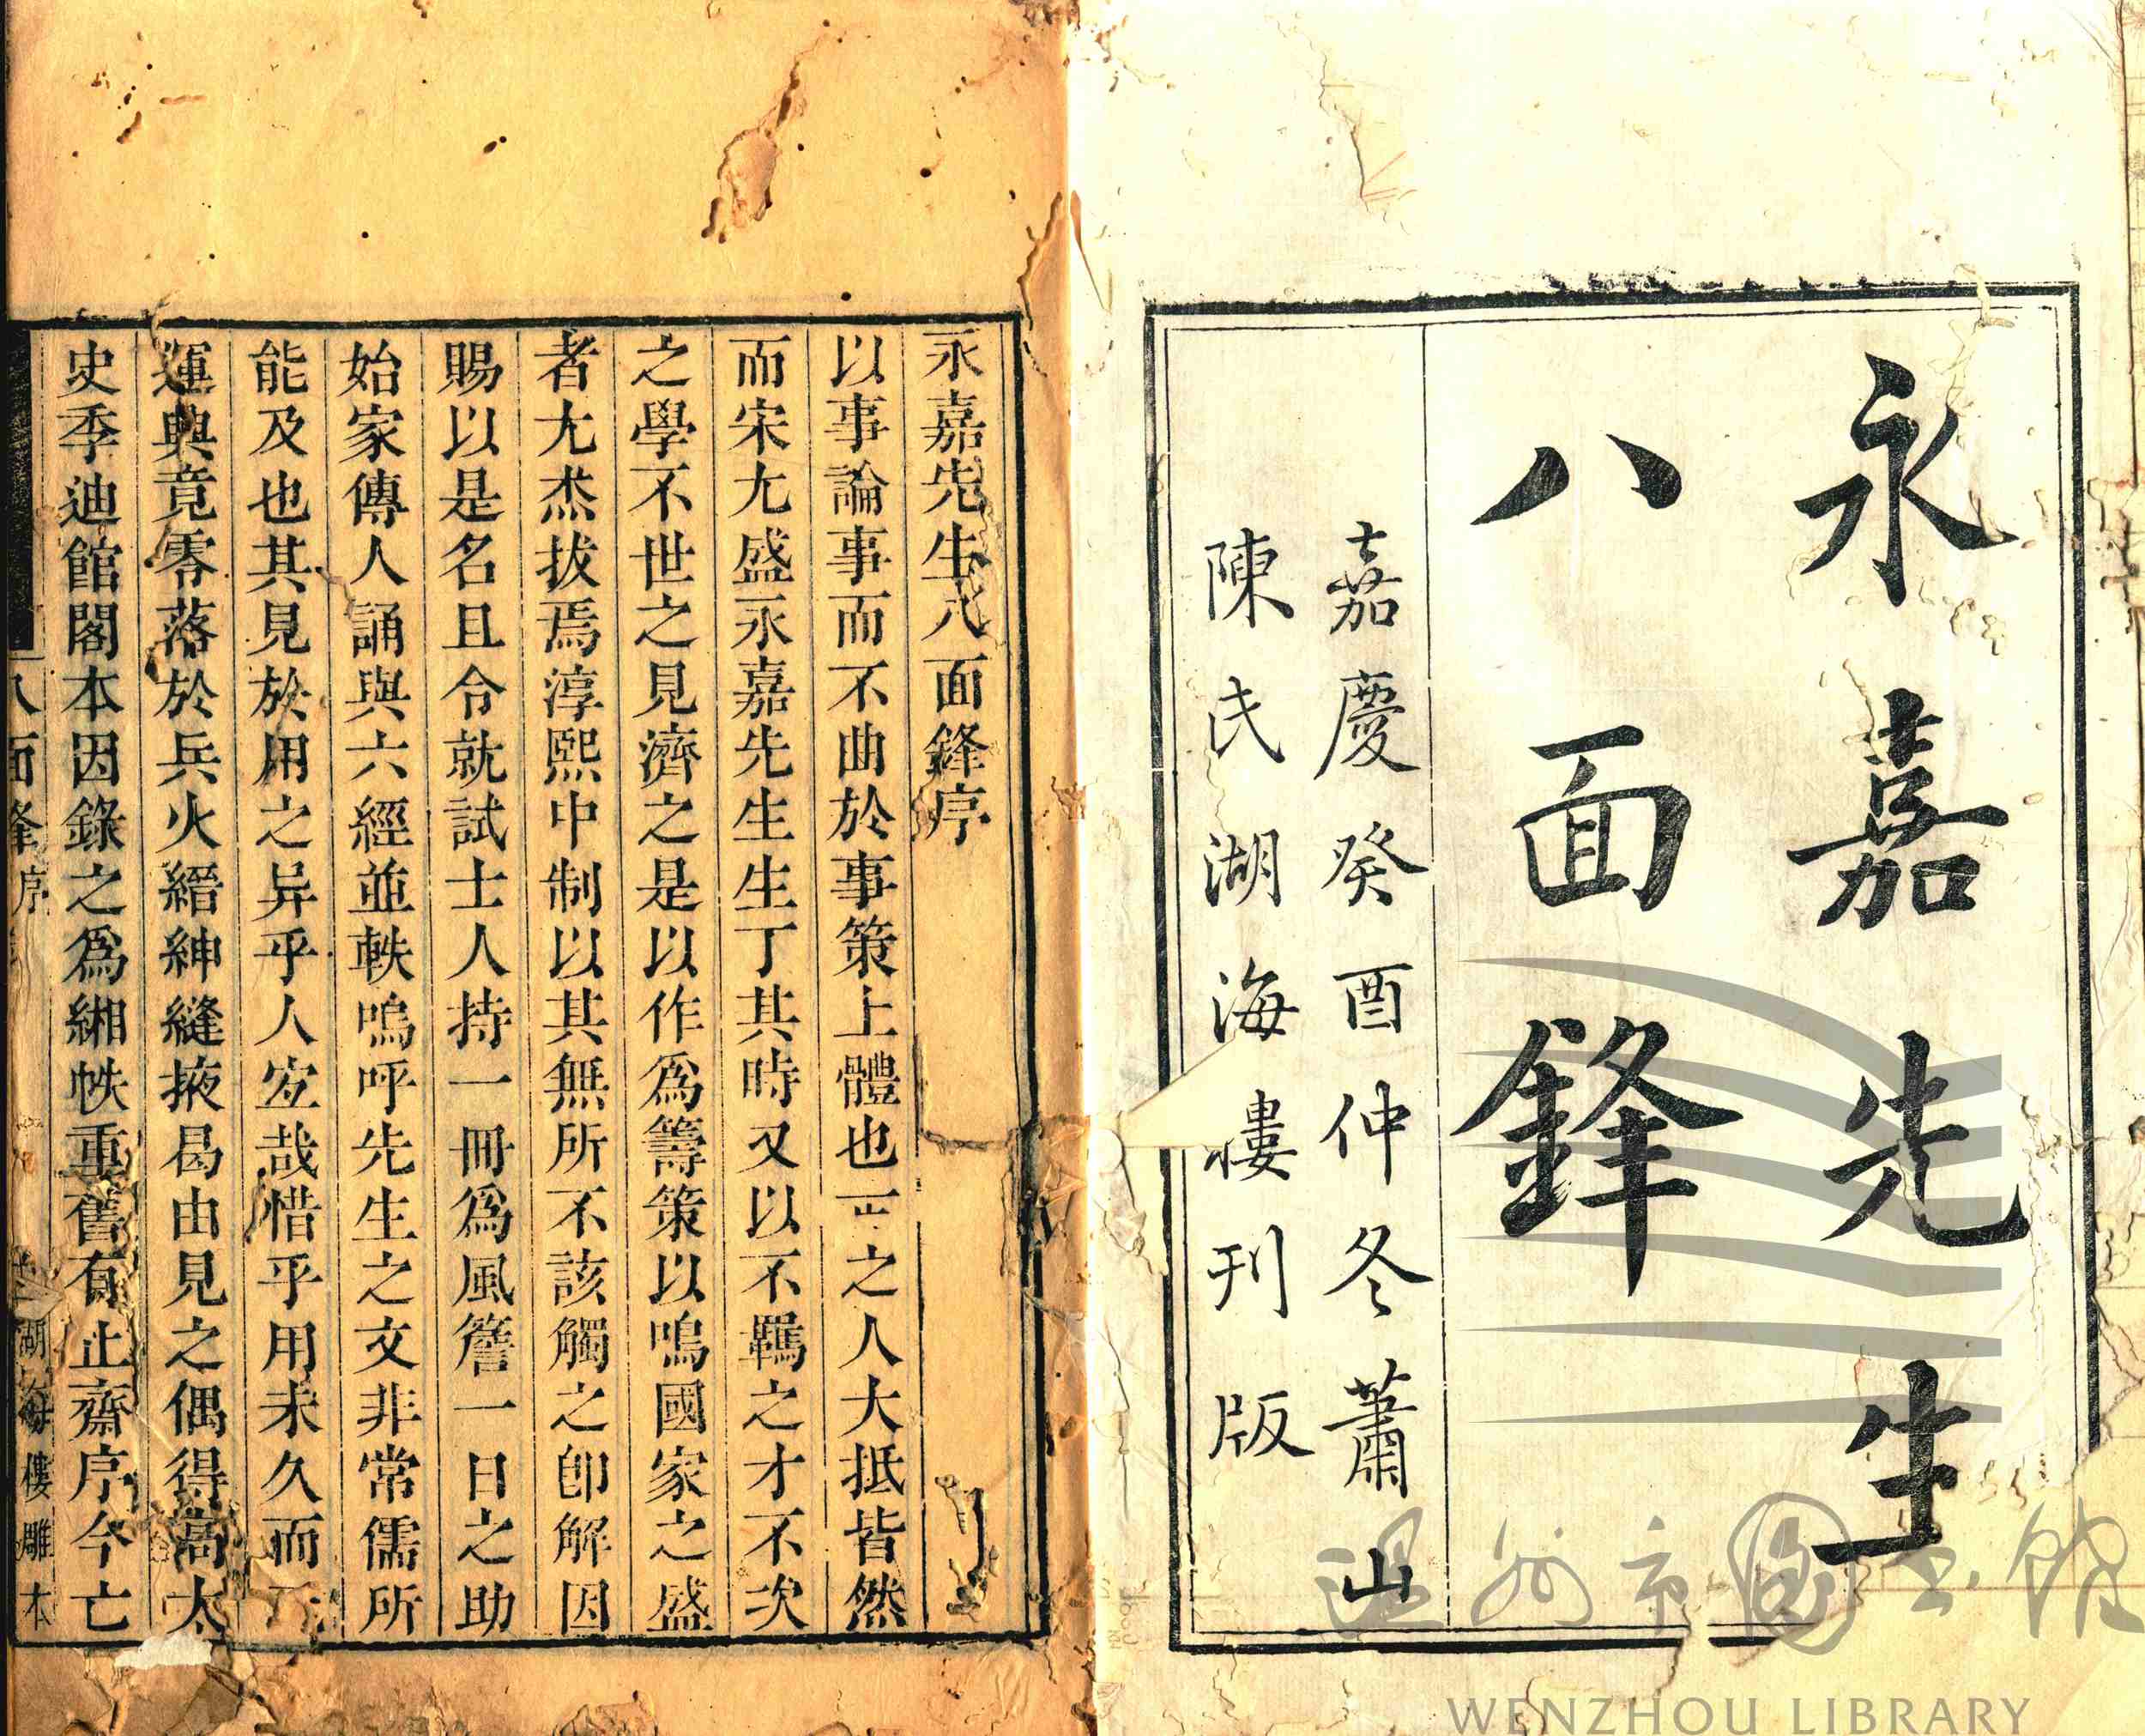 永嘉先生
八面鋒
嘉慶癸酉仲冬蕭山
陳氏湖海樓刊版
永嘉先生八面鋒序
以事論事而不曲於事策上體也古之人大抵皆然
而宋尤盛永嘉先生生丁其時又以不羈之才不次
之學不世之見濟之是以作爲籌策以鳴國家之盛
者尤杰拔焉淳熙中制以其無所不該觸之卽解因
賜以是名且令就試士人持一冊爲風簷一日之助
始家傳人誦與六經並軼嗚呼先生之文非常儒所
能及也其見於用之异乎人宐哉惜乎用未久而
運興竟零落於兵火縉紳縫掖曷由見之偶得高太
史季迪館閣本因錄之爲緗帙重舊有止齋序今亡
八面鋒序
湖海樓雕本
温州市圖書館
WENZHOU LIBRARY